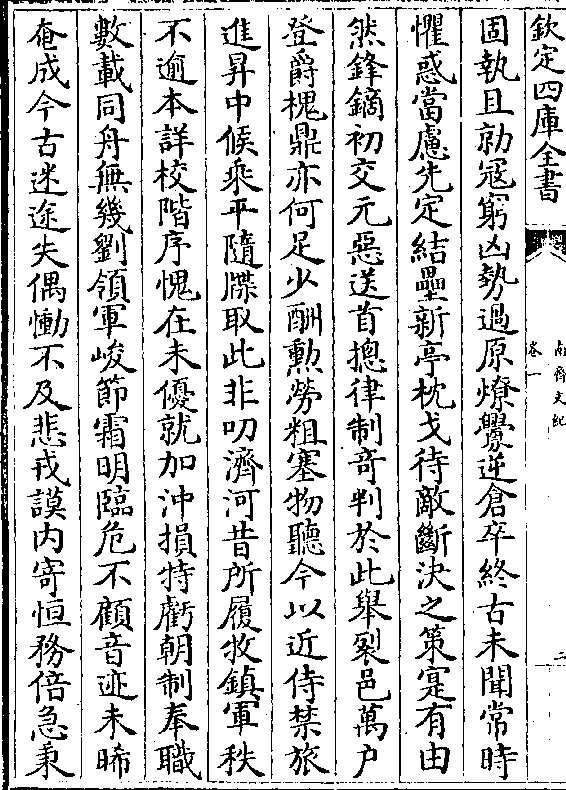 欽定四庫全書
南齊文紀
卷一
二
固執且勍寇窮凶勢過原燎釁逆倉卒終古未聞常時
懼惑當慮先定結壘新亭枕戈待敵斷決之策寔有由
然鋒鏑初交元惡送首摠律制奇判於此舉裂邑萬户
登爵槐鼎亦何足少酬勲勞粗塞物聽今以近侍禁旅
進昇中候乘平隨牒取此非叨濟河昔所履牧鎮軍秩
不逾本詳校階序愧在未優就加沖損特虧朝制奉職
數載同舟無幾劉領軍峻節霜明臨危不顧音迹未晞
奄成今古迷途失偶慟不及悲戎謨内寄恒務倍急秉